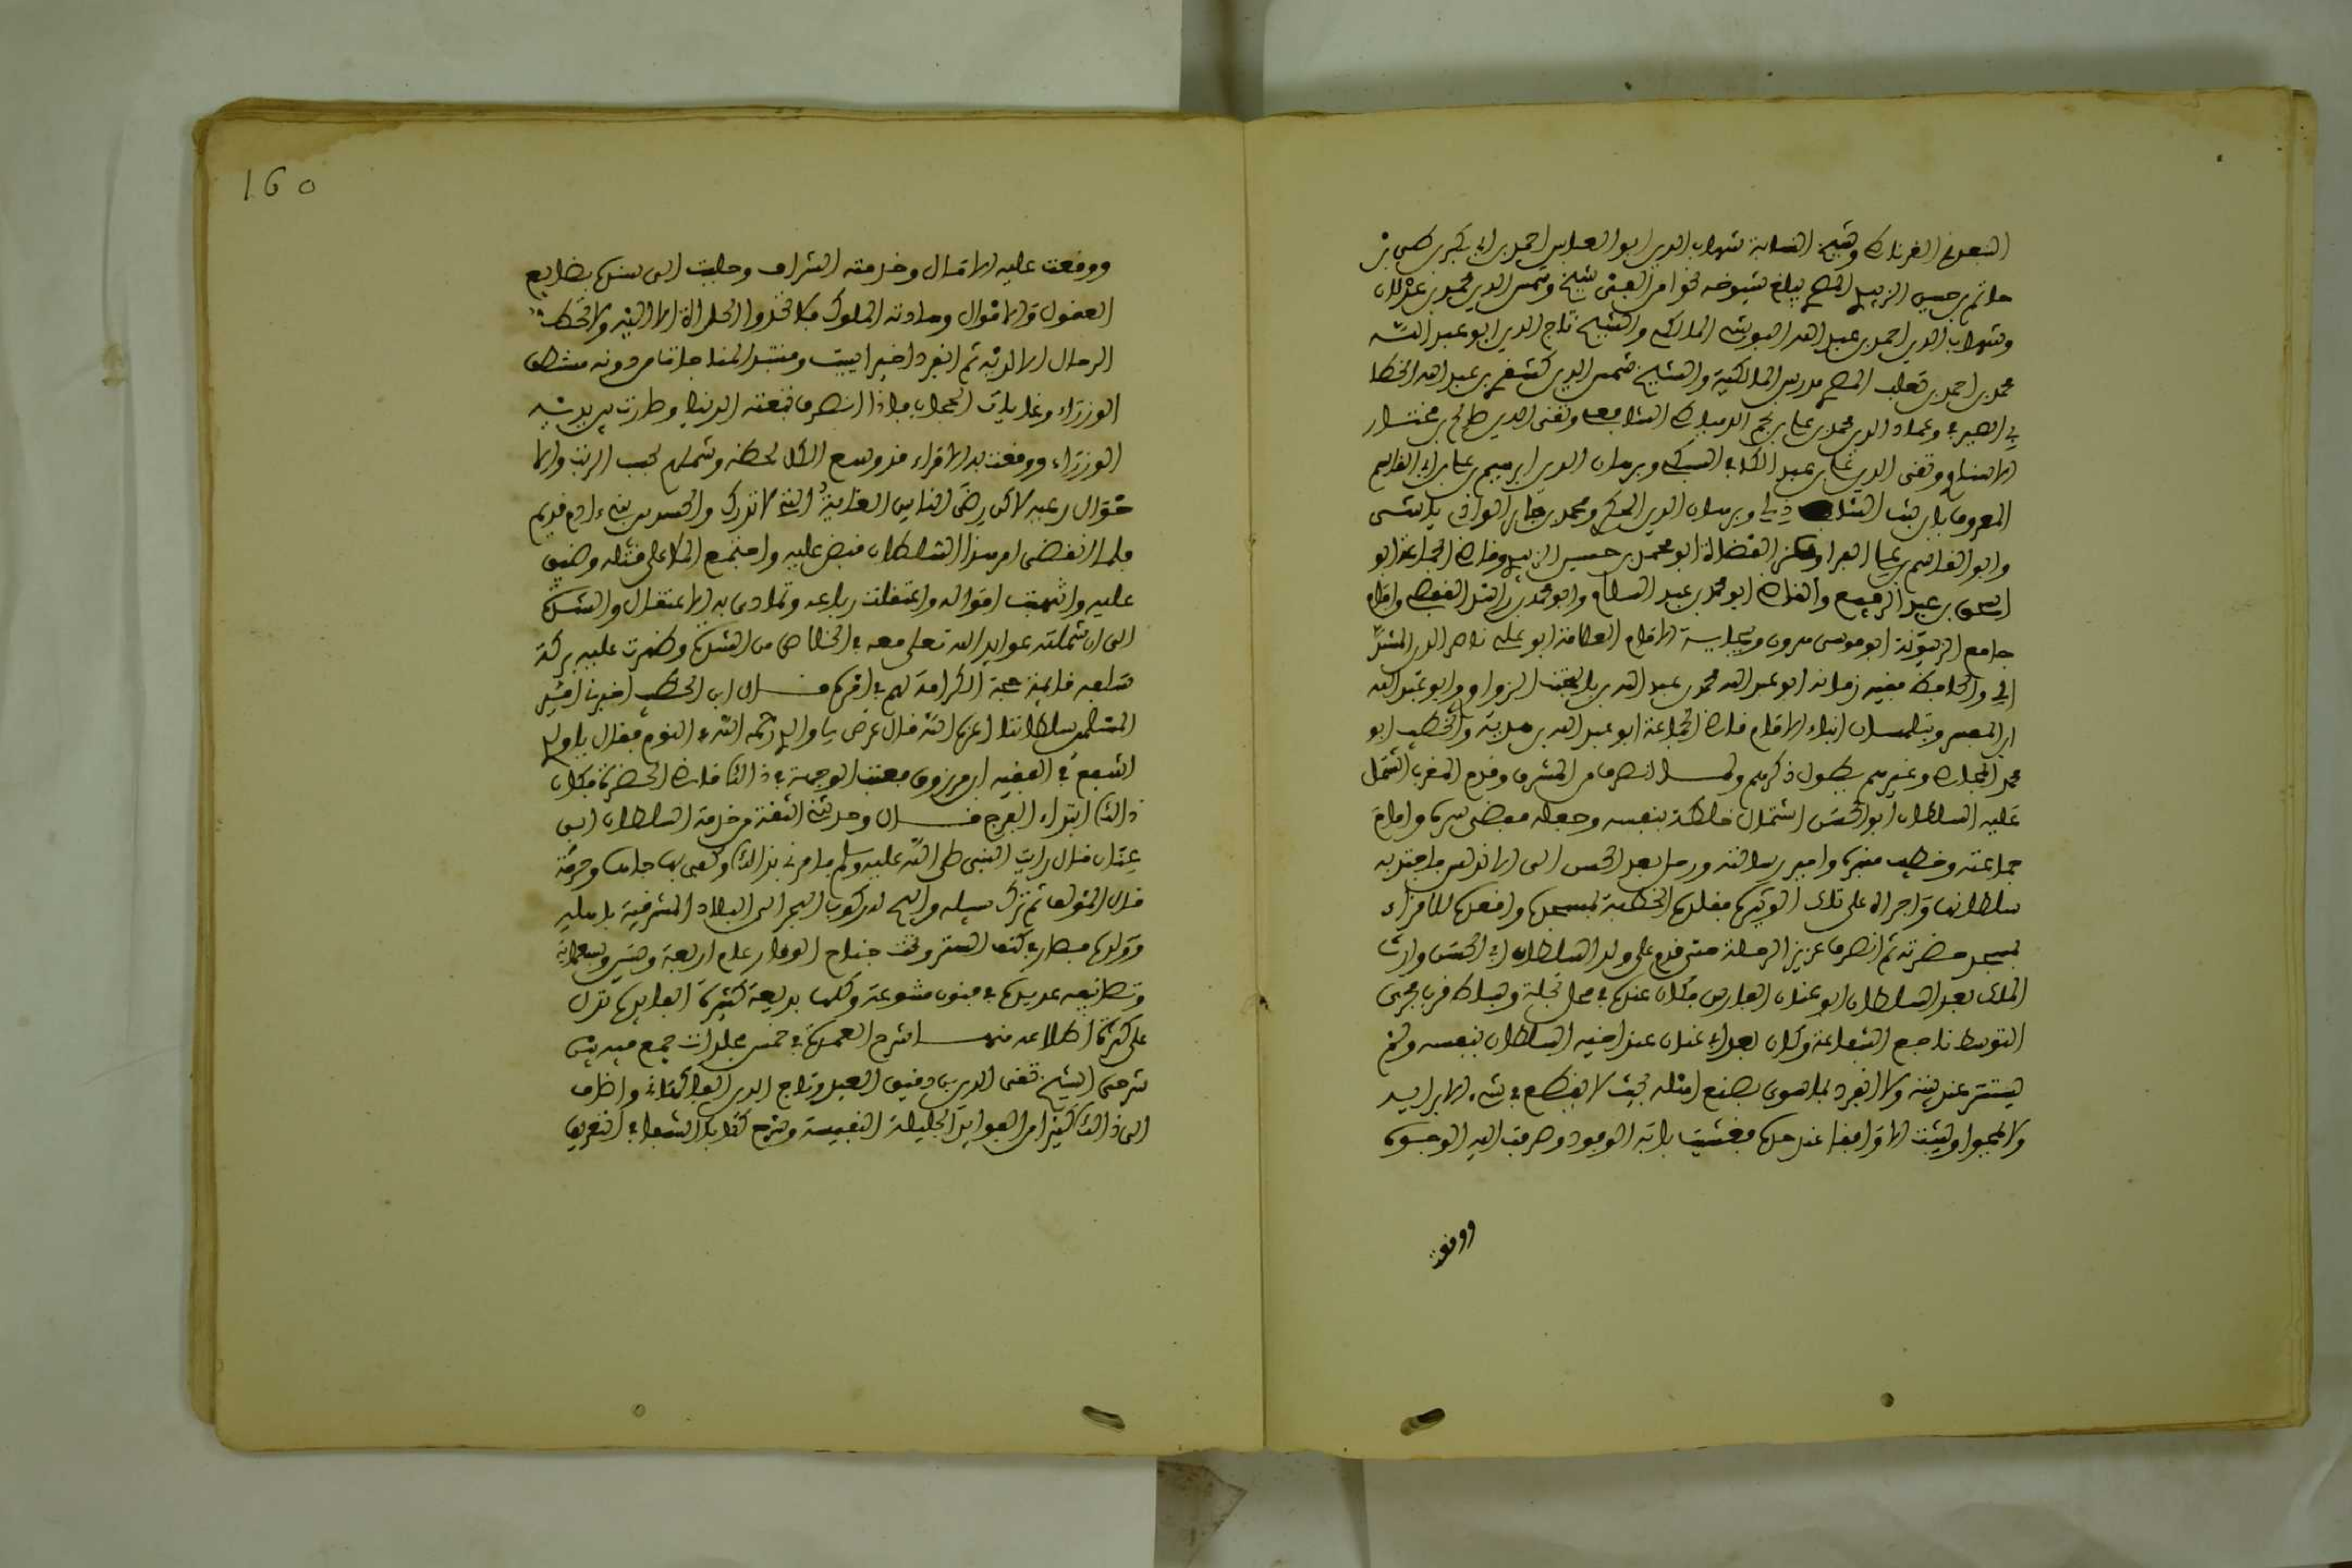 الغرناطي وشيخ شهاب الدين ابو العباس احمد بن ابي بكر بن
حاتم بن حسين الزبيدي المصري يبلغ شيوخه نحوا من الفي شيخ وشمس الدين محمد بن عدلان
وشهاب الدين احمد بن عبد الله المالكي والشيخ تاج الدين ابو عبد الله
محمد بن احمد بن ثعلب المصري مدرس المالكية والشيخ شمس الدين بن عبد الله الخطا
ءي الصيرفي وعماد الدين محمد بن علي بن نجم الدمياطي الشافعي وتقي الدين صالح بن مختار
الاشناوي وتقي الدين علي بن عبد الكافي السبكي وبرهان الدين ابرهيم بن علي بن ابي القاسم
المعروف بابن بنت الشاذلي وبرهان الدين الحكري ومحمد بن جابر الوادي ياشي
وابو القاسم بن علي البرا وعز القضاة ابو محمد بن حسين الزبيدي وقاضي الجماعة ابو
اسحق بن عبد الرفيع والقاضي ابو محمد بن عبد السلام وابو محمد بن راشد القفصي وامام
جامع الزيتونة ابو موسى هرون وببجاية الامام العلامة ابو علي ناصر الدين المشد
الي والحافظ فقيه زمانه ابو عبد الله محمد بن عبد الله بن يلبخت الزواوي وابو عبد الله
ابن المعمر وبتلمسان ابناء الامام قاضي الجماعة ابو عبد الله بن هدية والخطيب ابو
محمد المجاصي وغيرهم يطول ذكرهم ولما انصرف من المشرق وقدم المغرب اشتمل
عليه السلطان ابو الحسن اشتمال خلطة بنفسه وجعله مفضى سره وامام
جمعته وخطيب منبره وامين رسالته ورحل بعد الحسن الى الاندلس فاجتذبه
سلطانها واجراه على تلك الوتيرة فقلده الخطبة بمسجده واقعده للاقراء
بمسجد حضرته ثم انصرف عزيز الرحلة حتى قدم على ولد السلطان ابي الحسن وارث
الملك بعد السلطان ابو عنان فارس فكان عنده في محل تجلة وبساط قرب مجرى
التوسط ناجع الشفاعة وكان بعد ابي عنان عند اخيه السلطان بنفسه ولم
يستتر عنه بشيء ولا انفرد بما سوى بضع اهله بحيث لا يقطع في شيء الا برايه
ولا يمحوا ويثبت الا واقفا عند حده فغشيت بابه الوفود وصرفت اليه الوجوه
ووقفت
160
ووقفت عليه الامال وخدمته الاشراف وجلبت الى سدته بضايع
العقول والاموال وهادته الملوك فلا تحدوا الحداة الا اليه ولا تحط
الرحال الا لديه ثم انفرد اخيرا ببيت ومنتبذ المناجاة من دونه مصطف
الوزراء وغايات الحجاب فاذا انصرف تبعته الدنيا وطارت بين يديه
الوزراء ووقفت ببابه الامراء قد وسع الكل لحظه وشملهم بحسب الرتب والا
حوال رعيه لاكن رضى الناس الغاية التي لا تدرك والحسد بين بني ءادم قديم
فلما انقضى امر هذا السلطان قبض عليه واجتمع الملا على قتله وضيق
عليه وانتهبت امواله واعتقلت رباعه وتمادى به الاعتقال والشدة
الى ان شملته عوايد الله تعلى معه في الخلاص من الشدة وظهرت عليه بركة
سلفه قايمة حجة الكرامة لهم في امره قال ابن الخطيب اخبرنا امير
المسلمين سلطاننا اعزه الله قال عرض لي والدي رحمه الله في النوم فقال يا ولدي
اشفع في الفقيه ابن مرزوق فعينت للوجهة في ذالك قاضي الحضرة فكان
ذالك ابتداء الفرج قال وحدثني الثقة من خدمة السلطان ابي
عنان قال رايت النبي صلى الله عليه وسلم يامرني بذالك وكفى بها جاها وحرمة
قال المؤلف ثم ترك سبيله وابيح له ركوب البحر الى البلاد المشرقية باهله
وولده فصار في كنف الستر وتحت جناح الوقار عام اربعة وستين وسبعمائة
وتصانيفه عديدة في فنون متنوعة وكلها بديعة كثيرة الفايدة تدل
على كثرة اطلاعه منها شرح العمدة في خمس مجلدات جمع فيه بين
شرحي الشيخ تقي الدين بن دقيق العيد وتاج الدين الفاكهاني واضاف
الى ذالك كثيرا من الفوايد الجليلة النفيسة وشرح كتاب الشفا في التعريف